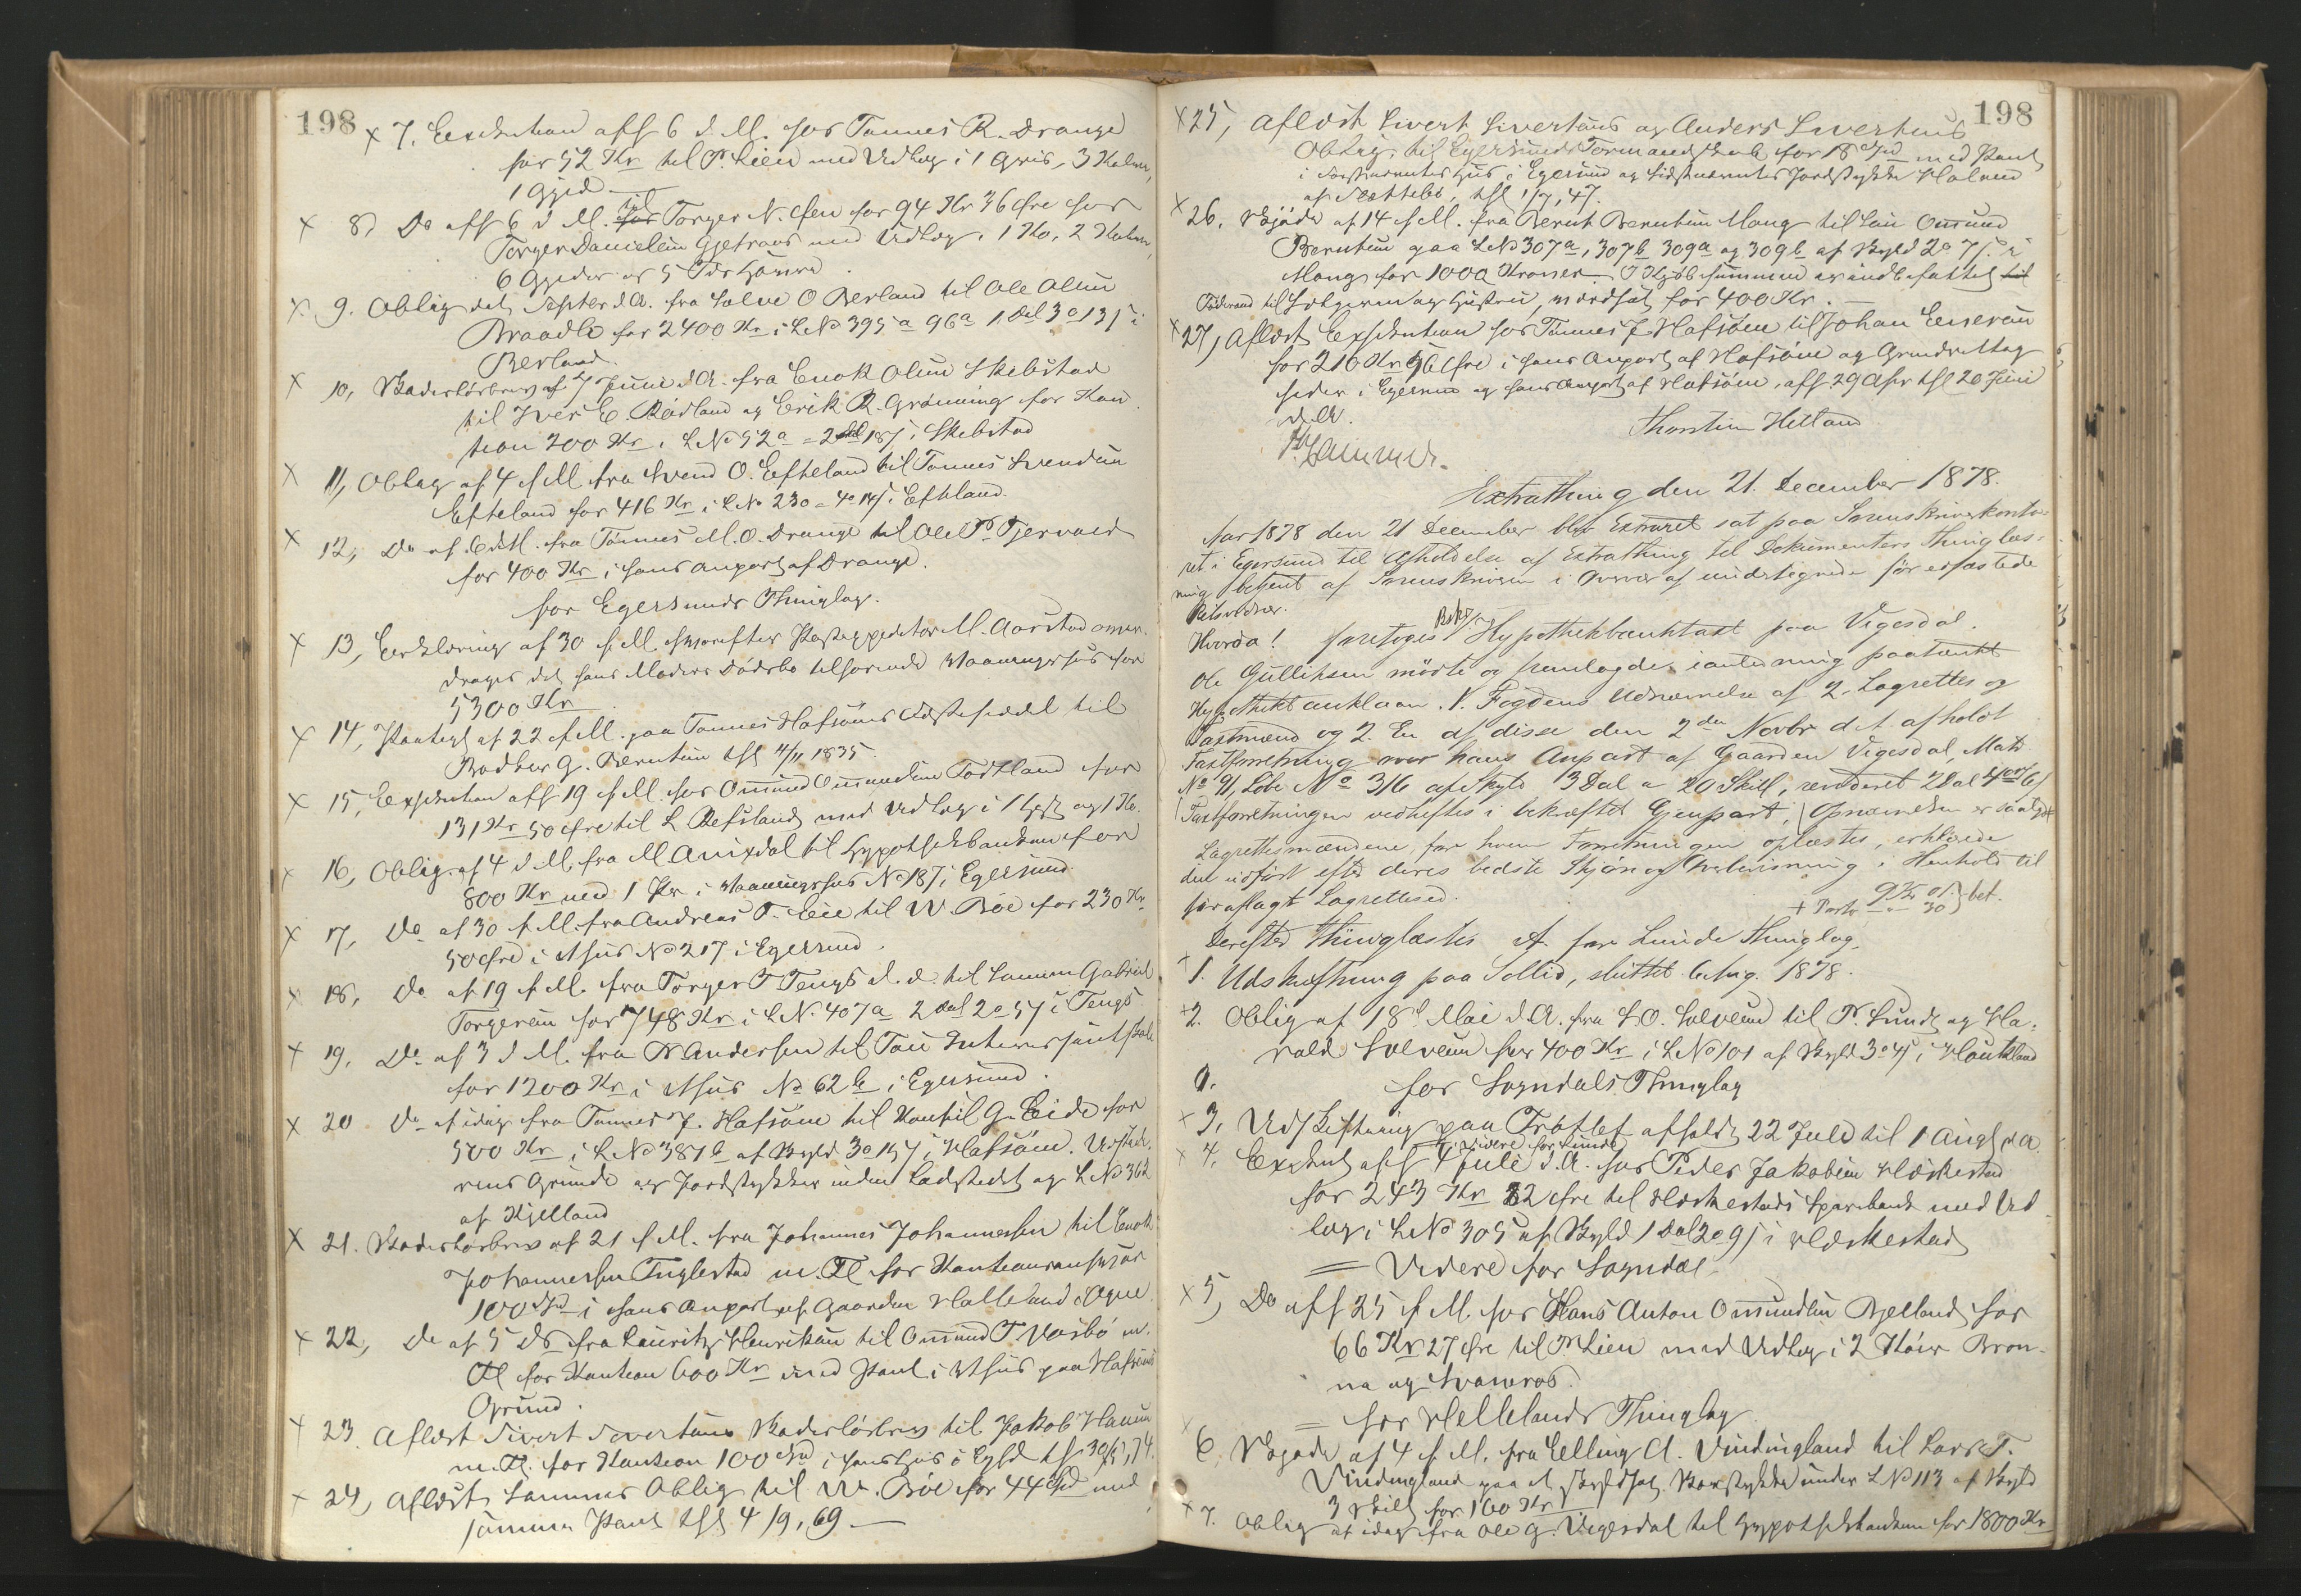 198
x 7. Execution aff 6 d. M. hos Tønnes R. Drange
for 52 Kr til P. Lien med Udlæg i 1 Gris, 3 Kalve,
1 Gjed
x 8, Do aff 6 d M. til Torger N. for 94 Kr 36 Øre hos
Torger Danielsen Gjetraas med Udlæg i 1 Ko, 2 Kalve,
6 Gjeder og 5 Tdr Havre
x 9. Oblig dat Septbr d. A. fra Salve O Berland til Ole Olsen
Braadli for 2400 Kr i LNo 395a 96a 1 Dal 3 o 13 s i
Berland.
x 10, Skadesløsbrev af 7 Juni d. A. fra Enok Olsen Skebstad
til Iver E. Rødland og Erik R. Grønning for Kau-
tion 200 Kr i LNo 52a = 2 18 s i Skebstad
x 11, Oblig af 4 f M. fra Svend O. Efteland til Tønnes Svendsen
Efteland for 416 Kr i LNo 230 = 4 o 14 s i Efteland.
x 12, Do af 6 d M. fra Tønnes M. O. Drange til Ole P. Tjervaag
for 400 Kr i hans Anpart af Drange.
for Egersunds Thinglag.
x 13, Erklæring af 30 f. M. hvorefter Postexpeditør M. Aarstad over-
drages det hans Moders Dødsbo tilhørende Vaaningshus for
5300 Kr
x 14, Paategn af 22 f. M. paa Tønnes Hafsøes Udstedel til
G. Berntsen thl 4/11 1835.
x 15, Execution aff 19 f. M. hos Omund Omundsen Tostland for
131 Kr 50 Øre til L Refsland med Udlæg i 1 Hest og 1 Ko.
x 16, Oblig. af 4 d. M. fra M til Hypothekbanken for
800 Kr med 1 Pr. i Vaaningshus No 187 i Egersund.
x 17, Do af 30 f. M. fra Andreas T. Eie til W. Bøe for 230 Kr
50 Øre i Vhus No 217 i Egersund.
x 18, Do af 19 f. M. fra Torger T Tengs d. æ. til Sønnen Gabriel
Torgersen for 748 Kr i LNo 407a 2 Dal 2 o 5 s i Tengs
x 19, Do af 3 d M. fra N Andersen til Tou
for 1200 Kr i Vhus No 62b i Egersund.
x 20 Do af idag fra Tønnes J. Hafsøe til G. Eide for
500 Kr i LNo 387b af Skyld 3 o 15 s i Hafsøe.
Grunde og Jordstykker inden Ladestedet og LNo 362
af Kjelland
x 21. Skadesløsbrev af 21 f. M. fra Johannes Johannessen til Enok
Johannessen Tuglestad m. Fl for Kautionsansvar
100 Spd i hans Anpart af Gaarden Halleland i Ogne.
x 22, Do af 5 ds fra Lauritz Henriksen til Omund T. Vasbø m.
Fl for Kaution 600 Kr med Pant i Vhus paa Hafsøes
Grund.
x 23 Aflæst Sivert Sivertsens Skadesløsbrev til Jakob
m. Fl. for Kaution 100 Spd i hans Hus i Egsd thl 30/5, 74.
x 24, Aflæst Sammes Oblig til W. Bøe for 44 Spd med
samme Pant thl 4/9, 69 —
198
x 25, Aflæst Sivert Sivertsens og Anders Sivertsens
Oblig. til Egersunds Formandskab for 18 Spd med Pant
i Førstnævntes Hus i Egersund og Sidstnævntes Jordstykke Holmen
af, thl 1/7, 47.
x 26. Skjøde af 14 f. M. fra Bernt Berntsen Mong til Søn Omund
Berntsen paa LNo 307a, 307b 309a og 309b af Skyld 2 o 7 s i
Mong for 1000 Kroner. I Kjøbesummen er indbefattet
Føderaad til Sælgeren og Hustru, værdsat for 400 Kr.
x 27, Aflæst Execution hos Tønnes J. Hafsøe til Johan Einersen
for 216 Kr 56 Øre i hans Anpart af Hafsøe og Grundrettig-
heder i Egersund og hans Anpart af Hafsøe, aff 29 Apr thl 20 Juni
d. A.
Thorstein Helland
Extrathing den 21. December 1878.
Aar 1878 den 21 December blev Extraret sat paa Sorenskriverkonto-
ret i Egersund til Afholdelse af Extrathing til Dokumenters Thinglæs-
ning betjent af Sorenskriveren i Overvær af undertegnede før edfæstede
Retsvidner.
Hvorda! foretoges Hypothekbanktaxt paa Vegesdal.
Ole Gulliksen mødte og fremlagde i anledning paatænkt
Hypothekbanklaan 1. Fogdens Udnævnelse af 2 Lagrettes og
Taxtmænd og 2. En af disse den 2den Novbr d. A. afholdt
Taxtforretning over hans Anpart af Gaarden Vegesdal, Matr
No 91, Løbe No 316 af Skyld 3 Dal 2 20 Skill, revideret 2 Dal 4 ort 6 s
(Taxtforretningen vedheftes i bekræftet Gjenpart,) Opnævnelsen
Lagrettesmændene, for hvem Forretningen oplæstes, erklærede
den udført efter deres bedste Skjøn og Overbevisning i Henhold til
før aflagt Lagrettesed.
+ Porto 9 Kr 01 30 bet.
Derefter Thinglæstes A. for Lunde Thinglag.
x 1. Udskiftning paa Sollid, sluttet 6 Aug. 1878.
x 2. Oblig af 18de Mai d. A. fra S. O. Solveun til P. Lund og Ha-
vald Solveun for 400 Kr i LNo 101 af Skyld 3 o 4 s i Haukland
for Sogndals Thinglag
x 3, Udskiftning paa Frøtlet afholdt 22 Juli til 1 Augt d A.
videre for Lunde
x 4, Execut aff 4 Juli d. A. hos Peder Jakobsen Heskestad
for 243 Kr 32 Øre til Heskestads Sparebank med Ud-
læg i LNo 305 af Skyld 1 Dal 2 o 9 s i Heskestad
= Videre for Sogndal
x 5, Do aff 25 f. M. hos Hans Anton Omundsen Bjelland for
66 Kr 27 Øre til P Lien med Udlæg i 2 Køer Bron-
na og Svaneros.
= for Hellelands Thinglag
x 6, Skjøde af 4 f. M. fra Elling A. Vindingland til Lars T.
Vindingland paa et skyldsat under LNo 113 af Skyld
3 Skill for 160 Kr
x 7. Oblig af idag fra Ole G. Vegesdal til Hypothekbanken for 1800 Kr